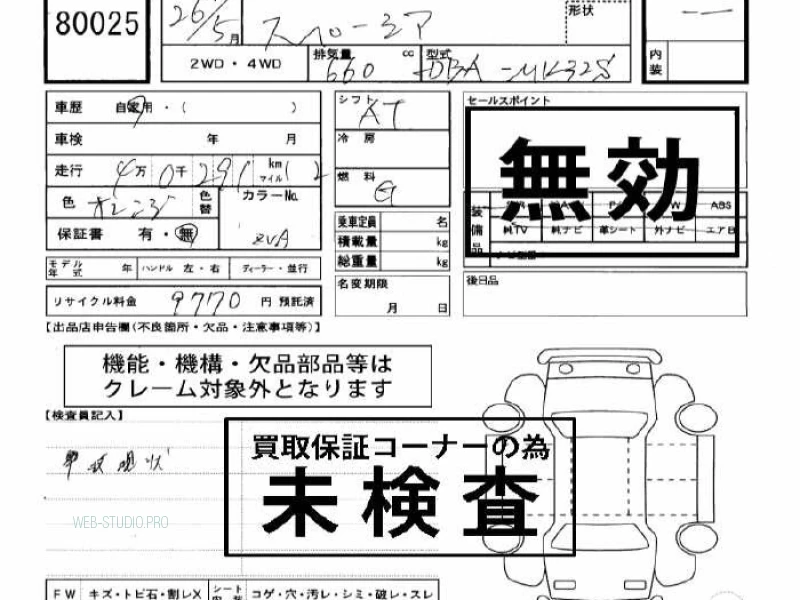 80025
26/5月
スペーシア
形状
2WD・4WD
排気量 660 cc
型式 DBA-MK32S
内装
車歴 自家用・( )
シフト AT
セールスポイント
車検 年 月
冷房
無効
走行 4万0千291 km マイル
燃料 G
色 オレンジ 色替
カラーNo. ZVA
装備品 ABS
保証書 有・無
純TV 純ナビ 革シート 外ナビ エアB
乗車定員 名
積載量 kg
総重量 kg
モデル年式 年 ハンドル 左・右 ディーラー・並行
名変期限 月 日
後日品
リサイクル料金 9770 円 預託済
【出品店申告欄(不良箇所・欠品・注意事項等)】
機能・機構・欠品部品等は
クレーム対象外となります
【検査員記入】
買取保証コーナーの為
未検査
現状
WEB-STUDIO.PRO
FW キズ・トビ石・割レX
シート コゲ・穴・汚レ・シミ・破レ・スレ